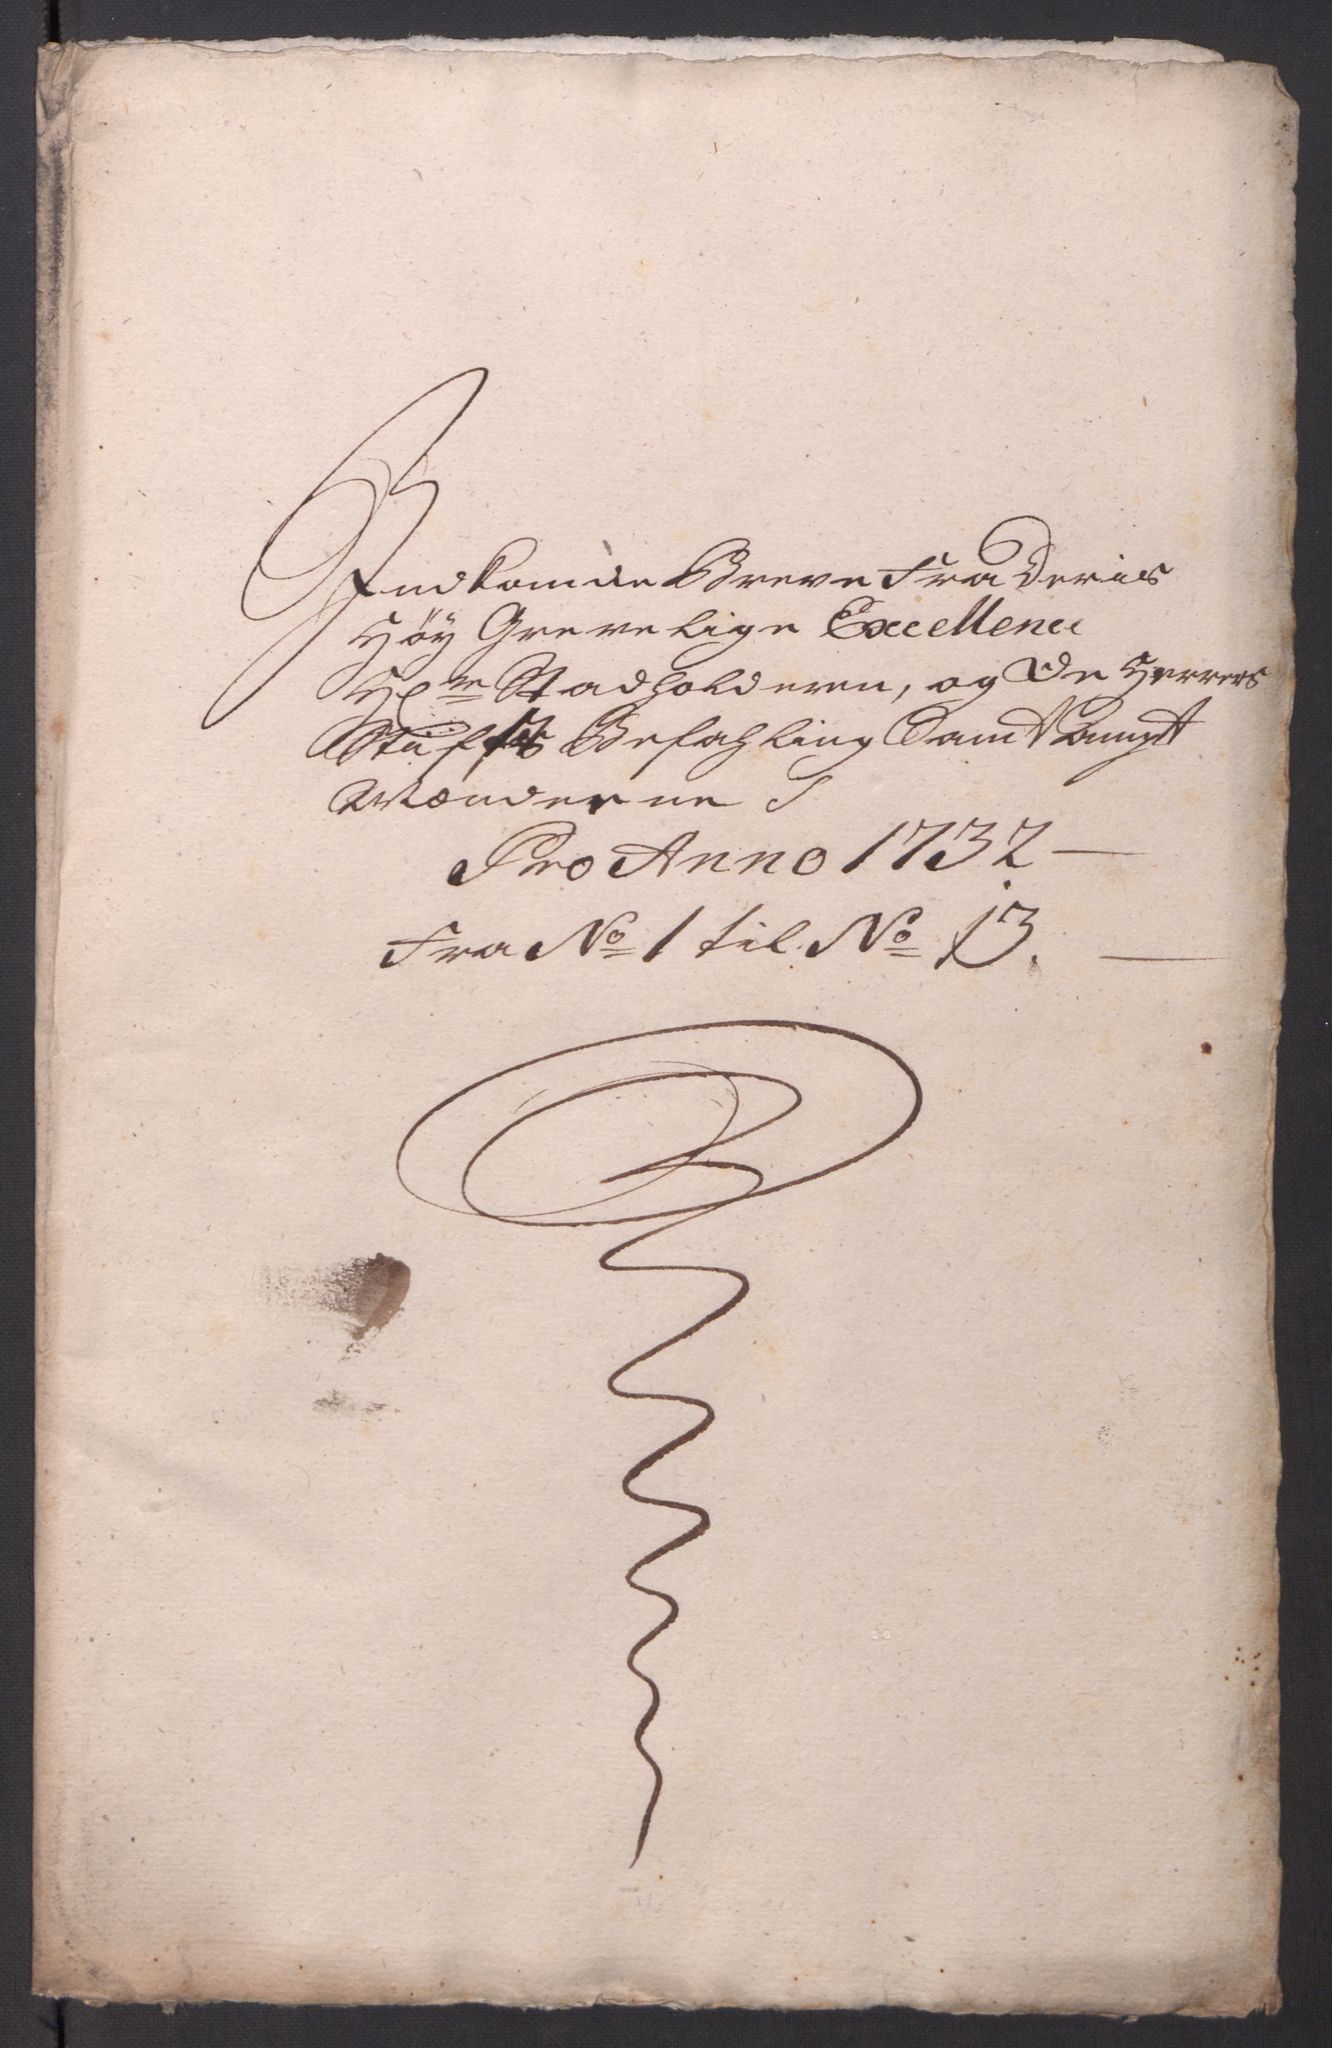 Indkomde Breve Fra Deris
Höy Grevelige Excellence
Hr Stadholderen, og De Herrers
Stift Befahling Samt Ampt
Mænderne
Pro Anno 1732
Fra No 1 til No 13.